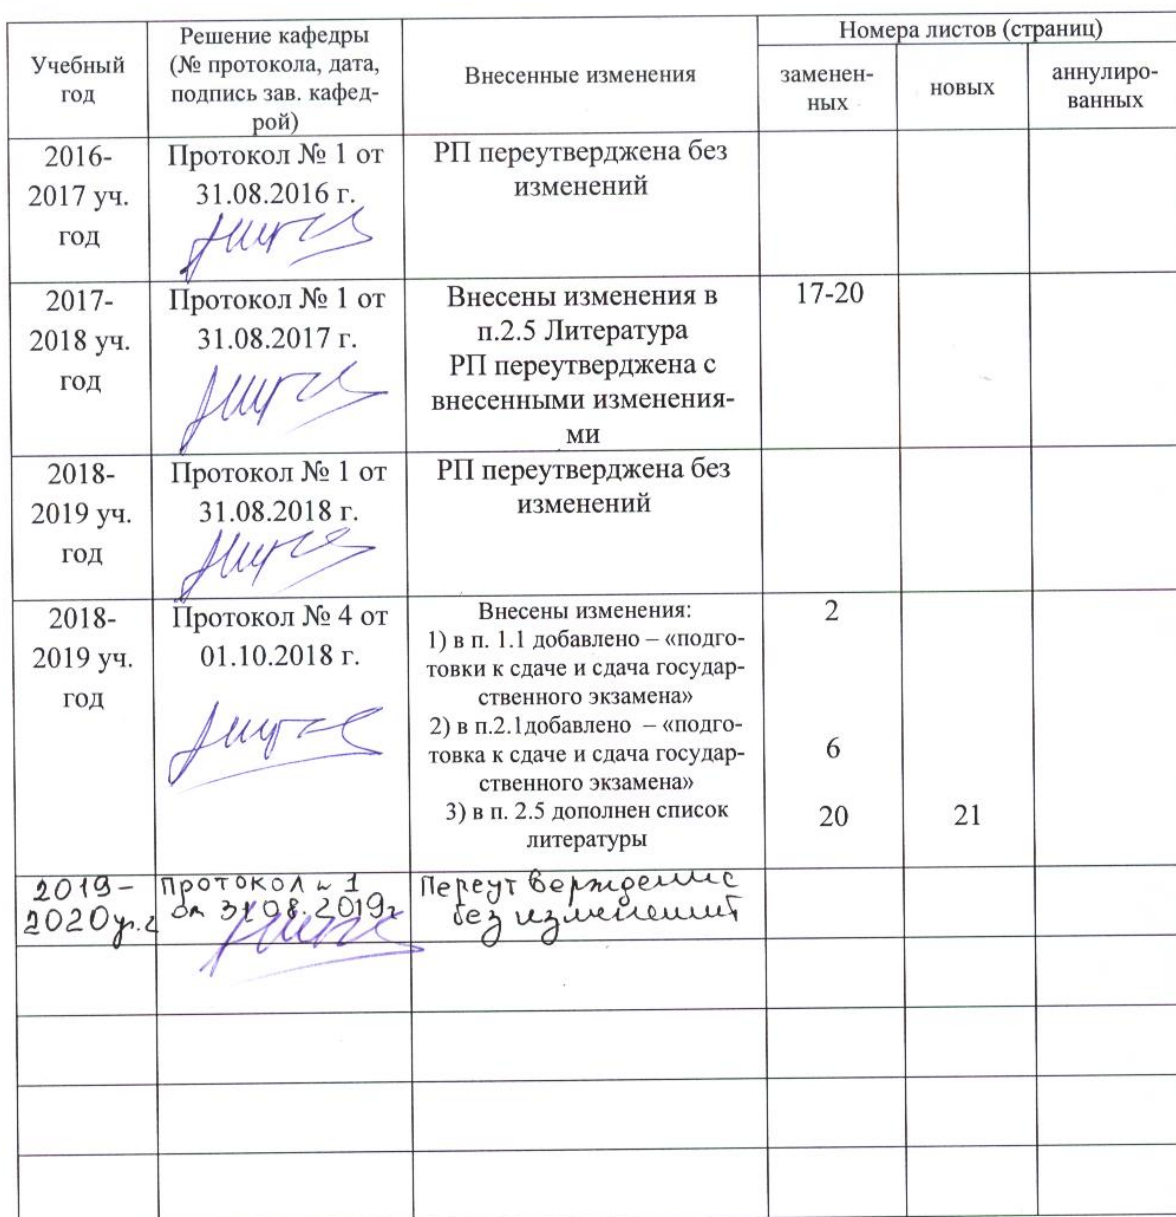 Учебный
год
Решение кафедры
(№ протокола, дата,
подпись зав. кафед-
рой)
Внесенные изменения
Номера листов (страниц)
заменен-
ных
новых
аннулиро-
ванных
2016-
2017 уч.
год
Протокол № 1 от
31.08.2016 г.
РП переутверджена без
изменений
2017-
2018 уч.
год
Протокол № 1 от
31.08.2017 г.
Внесены изменения в
п.2.5 Литература
РП переутверджена с
внесенными изменения-
ми
17-20
2018-
2019 уч.
год
Протокол № 1 от
31.08.2018 г.
РП переутверджена без
изменений
2018-
2019 уч.
год
Протокол № 4 от
01.10.2018 г.
Внесены изменения:
1) в п. 1.1 добавлено – «подго-
товки к сдаче и сдача государ-
ственного экзамена»
2) в п.2.1добавлено – «подго-
товка к сдаче и сдача государ-
ственного экзамена»
3) в п. 2.5 дополнен список
литературы
2
6
20
21
2019-
2020 у.г
Протокол № 1
от 31.08.2019г
Переутверждение
без изменений